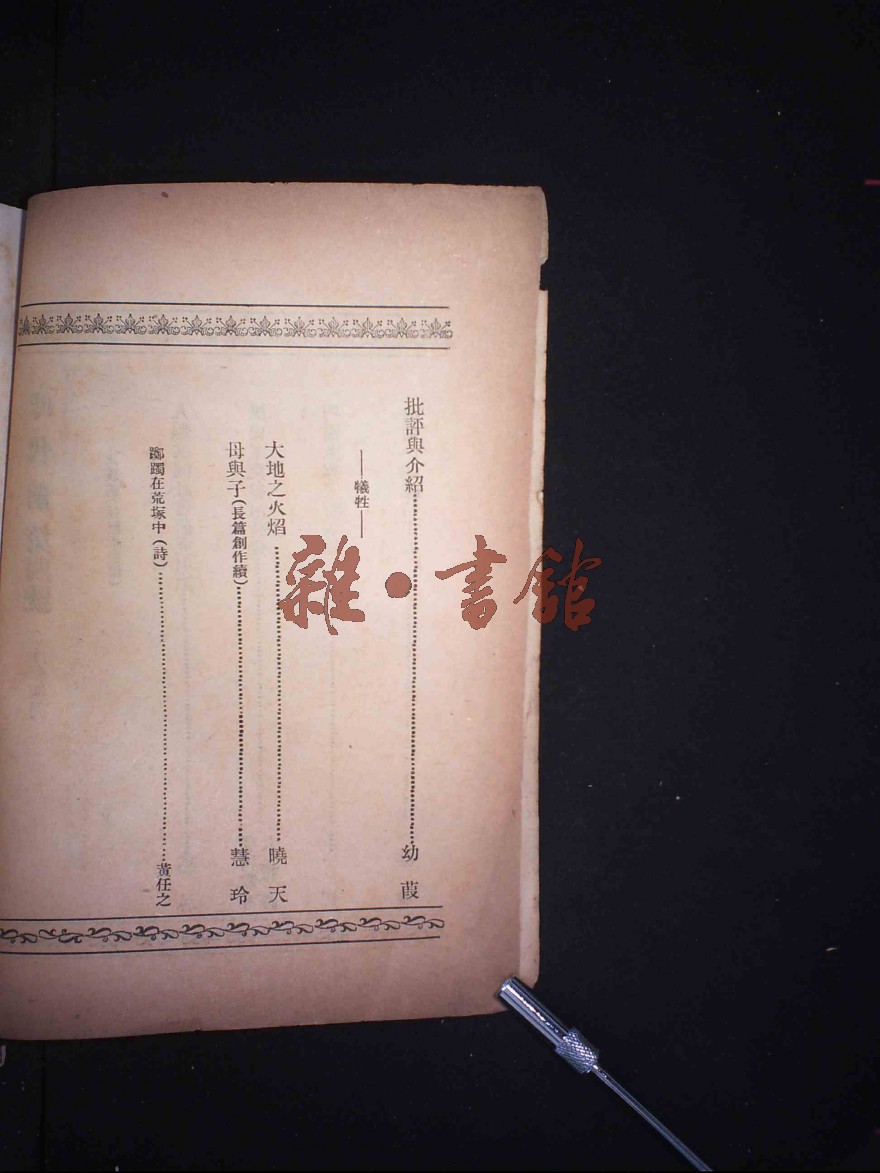 批評與介紹……幼葭
——犧牲——
大地之火焰……曉天
母與子(長篇創作續)……慧玲
躑躅在荒塚中(詩)……黃任之
雜·書館